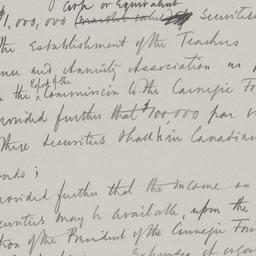 Cash or Equivalent
$1,000,000 securities
the Establishment of the Teachers
and Annuity Association as
in the Report of the Commission to the Carnegie Fo
rovided further that $700,000 par v
these securities shall be in Canadian
nds;
rovided further that the income on
ecurities may be available, upon the
tion of the President of the Carnegie Foun